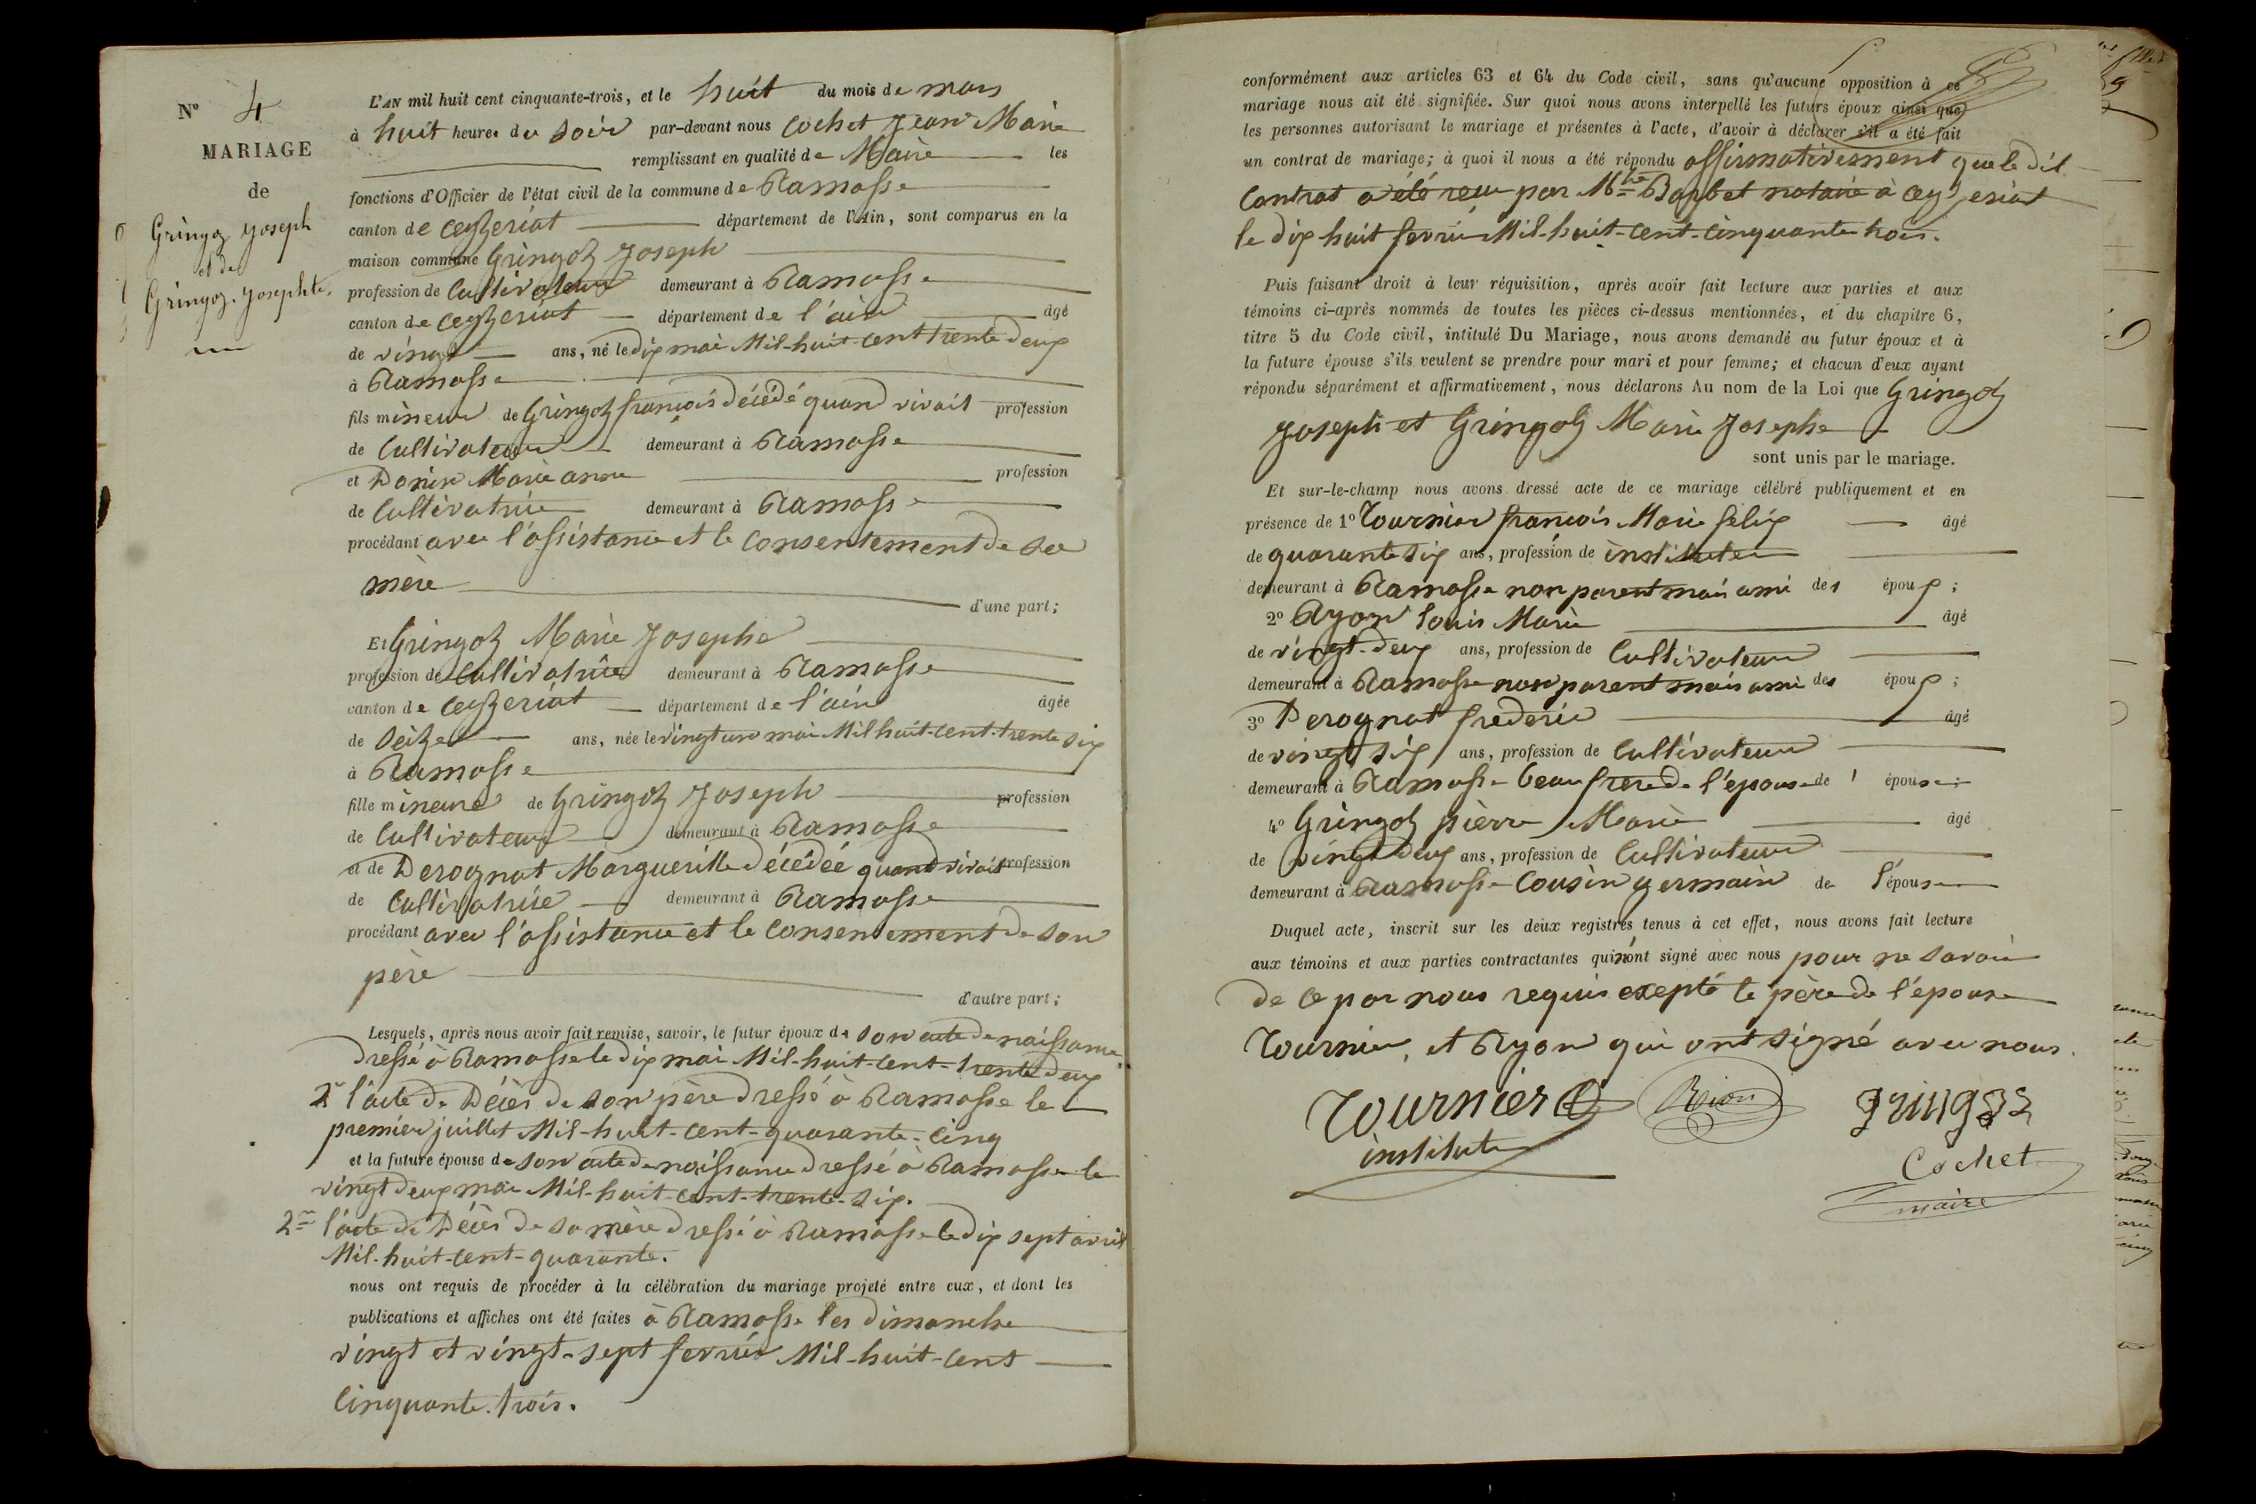 N° 4
MARIAGE
de
Gringoz Joseph
et de
Gringoz Josephte
L'AN mil huit cent cinquante-trois, et le huit du mois de mars
à huit heures du soir par-devant nous Cochet Jean Marie
remplissant en qualité de Maire les
fonctions d'Officier de l'état civil de la commune de Ramasse
canton de Ceyzeriat département de l'Ain, sont comparus en la
maison commune Gringoz Joseph
profession de Cultivateur demeurant à Ramasse
canton de Ceyzeriat département de l'ain âgé
de vingt ans, né le dix mai Mil-huit-cent trente deux
à Ramasse
fils mineur de Gringoz françois décédé quand vivait profession
de Cultivateur demeurant à Ramasse
et Donin Marie anne profession
de Cultivatrice demeurant à Ramasse
procédant avec l'assistance et le consentement de sa
mère
d'une part;
Et Gringoz Marie Josephe
profession de Cultivatrice demeurant à Ramasse
canton de Ceyzeriat département de l'ain âgée
de seize ans, née le vingt un mai Mil huit-cent-trente six
à Ramasse
fille mineure de Gringoz Joseph profession
de Cultivateur demeurant à Ramasse
et de Derognat Margueritte décédée quand vivait profession
de Cultivatrice demeurant à Ramasse
procédant avec l'assistance et le consentement de son
père
d'autre part;
Lesquels, après nous avoir fait remise, savoir, le futur époux de son acte de naissance
dressé à Ramasse le dix mai Mil-huit-cent-trente deux
2° l'acte de Décès de son père dressé à Ramasse le
premier juillet Mil-huit-cent-quarante-cinq
et la future épouse de son acte de naissance dressé à Ramasse le
vingt deux mai Mil-huit-cent-trente-six.
2° l'acte de Décès de sa mère dressé à Ramasse le dix sept avril
Mil-huit-cent-quarante.
nous ont requis de procéder à la célébration du mariage projeté entre eux, et dont les
publications et affiches ont été faites à Ramasse les dimanche
vingt et vingt-sept fevrier Mil-huit-cent
cinquante-trois.
conformément aux articles 63 et 64 du Code civil, sans qu'aucune opposition à ce
mariage nous ait été signifiée. Sur quoi nous avons interpellé les futurs époux ainsi que
les personnes autorisant le mariage et présentes à l'acte, d'avoir à déclarer s'il a été fait
un contrat de mariage; à quoi il nous a été répondu affirmativement que le dit
Contrat a été reçu par Mtre Barbet notaire à Ceyzeriat
le dix huit fevrier Mil-huit-cent-cinquante trois.
Puis faisant droit à leur réquisition, après avoir fait lecture aux parties et aux
témoins ci-après nommés de toutes les pièces ci-dessus mentionnées, et du chapitre 6,
titre 5 du Code civil, intitulé Du Mariage, nous avons demandé au futur époux et à
la future épouse s'ils veulent se prendre pour mari et pour femme; et chacun d'eux ayant
répondu séparément et affirmativement, nous déclarons Au nom de la Loi que Gringoz
Joseph et Gringoz Marie Josephe
sont unis par le mariage.
Et sur-le-champ nous avons dressé acte de ce mariage célébré publiquement et en
présence de 1° Tournier françois Marie félix âgé
de quarante six ans, profession de instituteur
demeurant à Ramasse non parent mais ami des époux;
2° Ryon louis Marie âgé
de vingt-deux ans, profession de Cultivateur
demeurant à Ramasse non parent mais ami des époux;
3° Derognat frederic âgé
de vingt six ans, profession de Cultivateur
demeurant à Ramasse beau frere de l'épouse de l'épouse;
4° Gringoz pierre Marie âgé
de vingt deux ans, profession de Cultivateur
demeurant à Ramasse Cousin germain de l'épouse
Duquel acte, inscrit sur les deux registres tenus à cet effet, nous avons fait lecture
aux témoins et aux parties contractantes qui n'ont signé avec nous pour ne savoir
de ce par nous requis excepté le père de l'épouse
Tournier, et Ryon qui ont signé avec nous.
Tournier Rion gringoz
institute
Cochet
maire